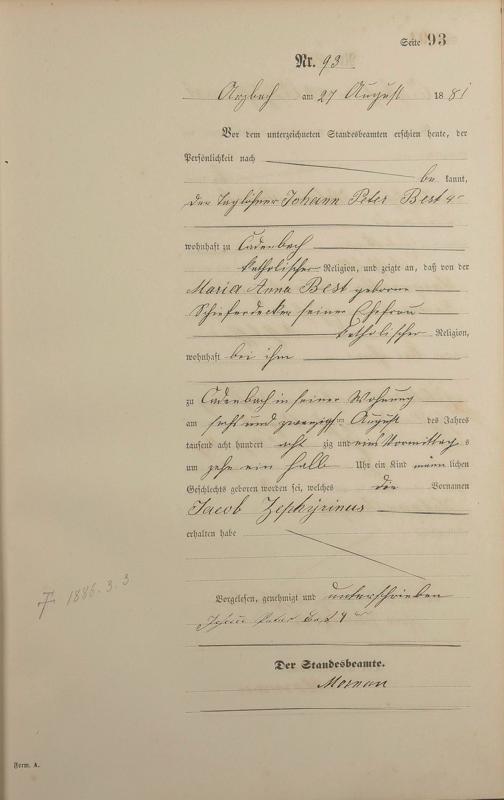 Seite 93
Nr. 93
Arzbach am 27 August 1881
Vor dem unterzeichneten Standesbeamten erschien heute, der
Persönlichkeit nach
be kannt,
der Taglöhner Johann Peter Best 4r
wohnhaft zu Cadenbach
katholischer Religion, und zeigte an, daß von der
Maria Anna Best geborne
Schieferdecker seiner Ehefrau
katholischer Religion,
wohnhaft bei ihm
zu Cadenbach in seiner Wohnung
am sechs und zwanzigsten August des Jahres
tausend acht hundert acht zig und eins Vormittag s
um zehn ein halb Uhr ein Kind männ lichen
Geschlechts geboren worden sei, welches die Vornamen
Jacob Zephÿrinus
erhalten habe
Vorgelesen, genehmigt und unterschrieben
Johann Peter Best 4r
Der Standesbeamte.
† 1886. 3. 3
Form. A.